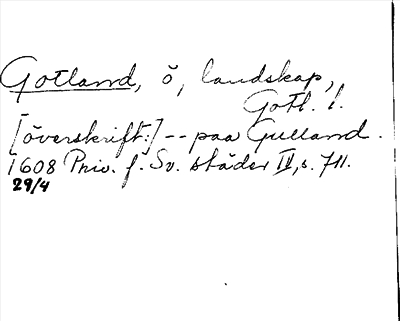 Gotland, ö, landskap,
Gotl. l.
[överskrift:] -- paa Gulland.
1608 Priv. f. Sv. städer IV, s. 711.
29/4